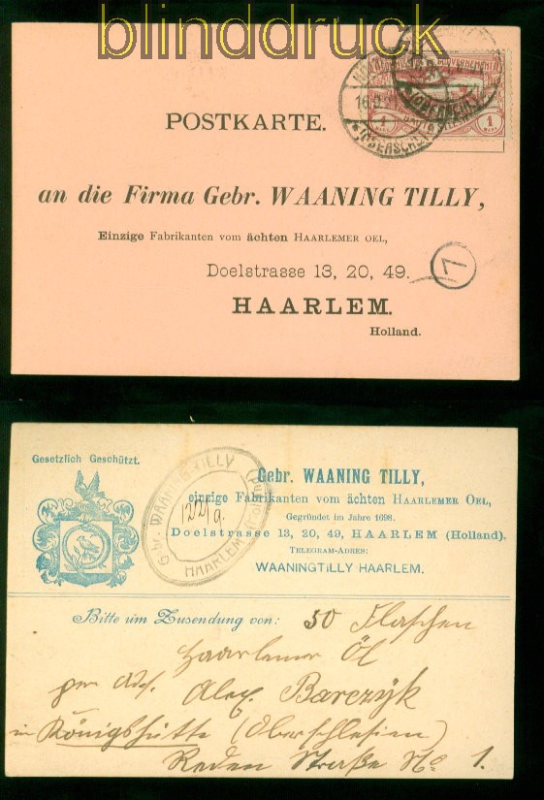 blinddruck
POSTKARTE.
1
1
an die Firma Gebr. WAANING TILLY,
Einzige Fabrikanten vom ächten HAARLEMER OEL,
Doelstrasse 13, 20, 49.
17
HAARLEM.
Holland.
Gesetzlich Geschützt.
Gebr. WAANING-TILLY
HAARLEM
Gebr. WAANING TILLY,
einzige Fabrikanten vom ächten HAARLEMER OEL,
Gegründet im Jahre 1698.
Doelstrasse 13, 20, 49, HAARLEM (Holland).
TELEGRAM-ADRES:
WAANINGTILLY HAARLEM.
Bitte um Zusendung von: 50 Flaschen
Haarlemer Öl
per Adr. Alex. Barczyk
in Königshütte (Oberschlesien)
Reden Straße No 1.